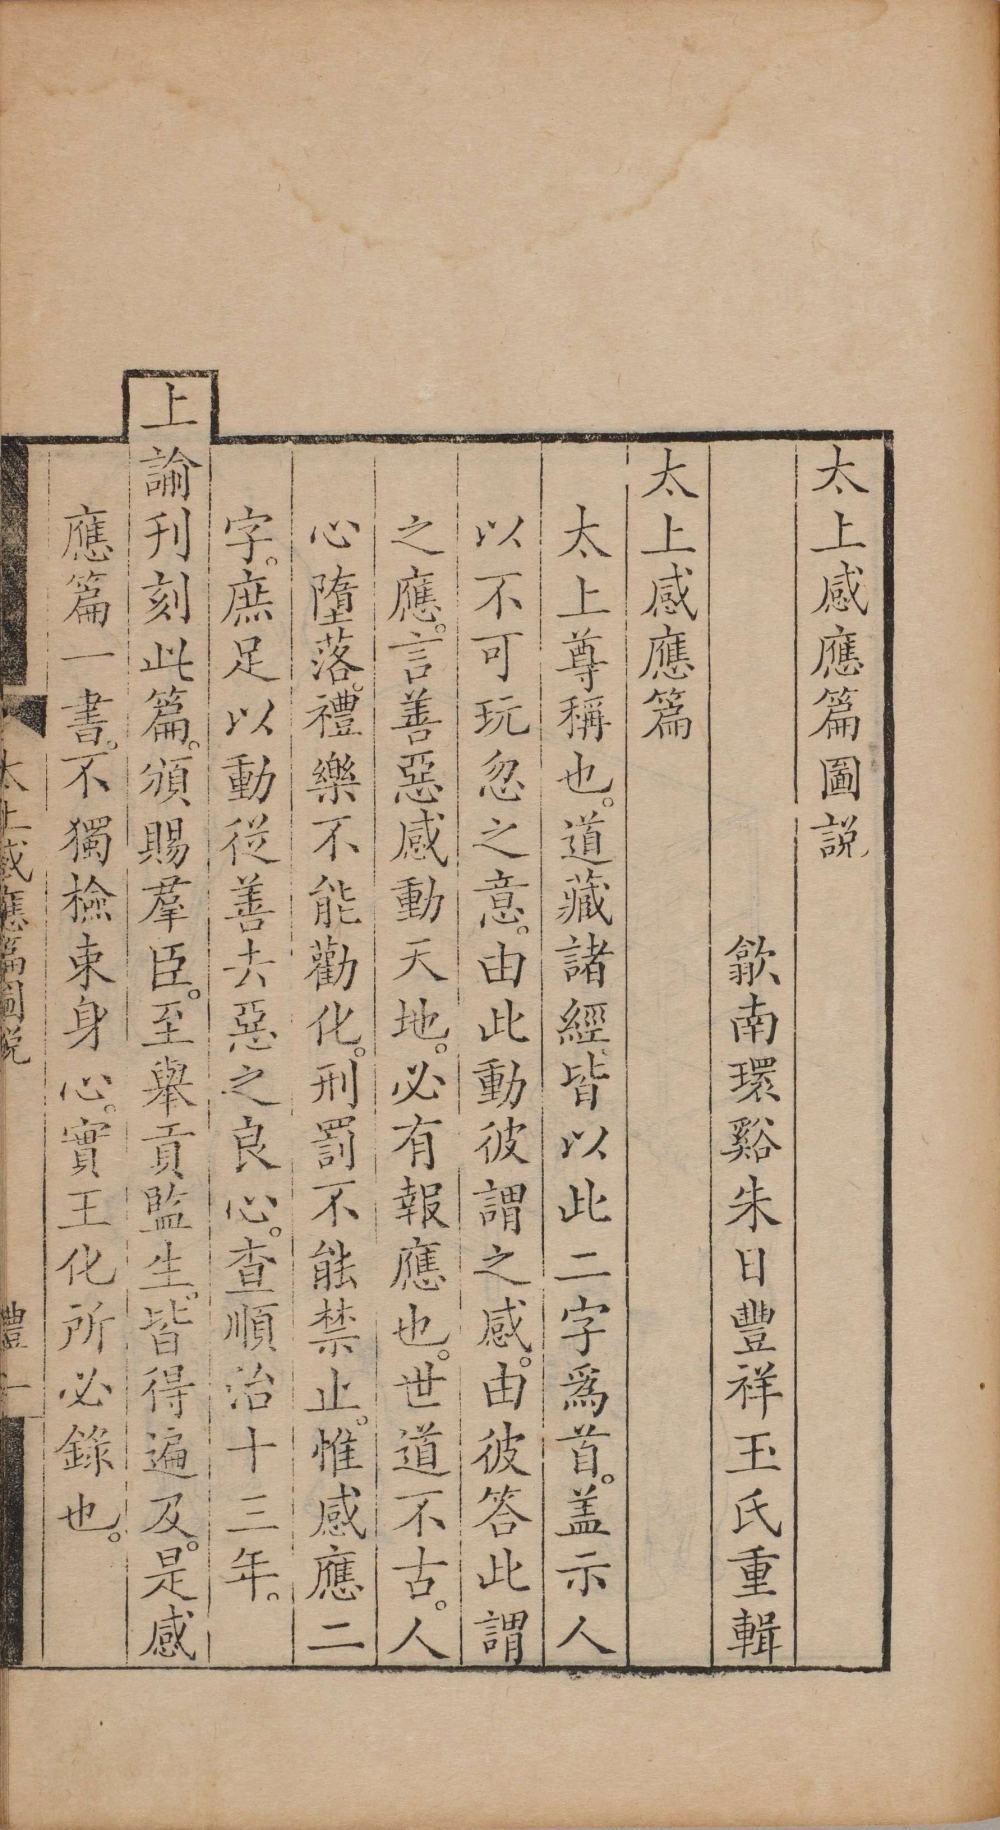 太上感應篇圖說
歙南環谿朱日豐祥玉氏重輯
太上感應篇
太上尊稱也。道藏諸經皆以此二字爲首。盖示人
以不可玩忽之意。由此動彼謂之感。由彼答此謂
之應。言善惡感動天地。必有報應也。世道不古。人
心墮落。禮樂不能勸化。刑罰不能禁止。惟感應二
字。庶足以動從善去惡之良心。查順治十三年。
上諭刊刻此篇。頒賜羣臣。至舉貢監生。皆得遍及。是感
應篇一書。不獨檢束身心。實王化所必錄也。
太上感應篇圖說
禮 一